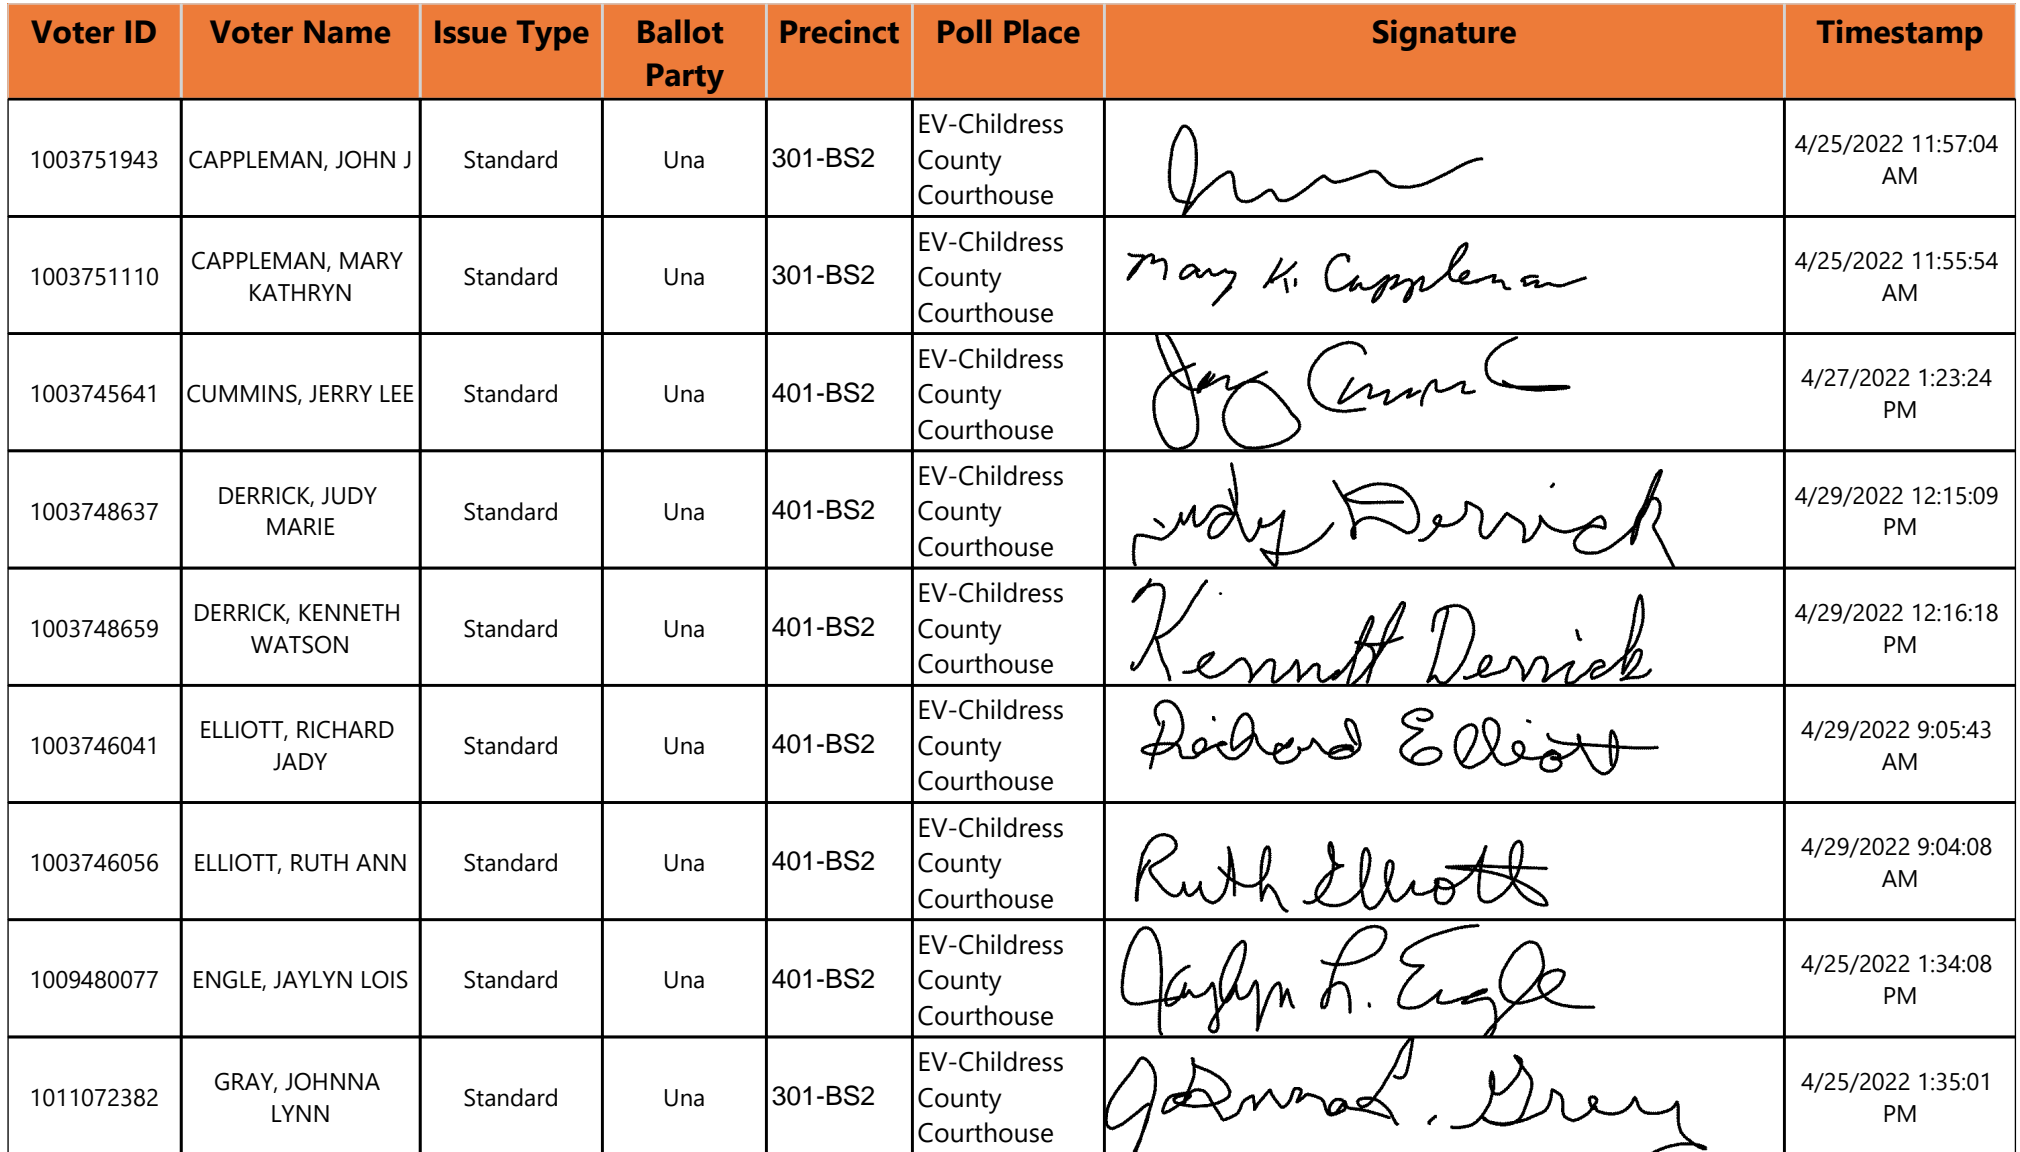 Voter ID Voter Name Issue Type Ballot Party Precinct Poll Place Signature Timestamp
1003751943 CAPPLEMAN, JOHN J Standard Una 301-BS2 EV-Childress County Courthouse 4/25/2022 11:57:04 AM
1003751110 CAPPLEMAN, MARY KATHRYN Standard Una 301-BS2 EV-Childress County Courthouse Mary K. Cappleman 4/25/2022 11:55:54 AM
1003745641 CUMMINS, JERRY LEE Standard Una 401-BS2 EV-Childress County Courthouse 4/27/2022 1:23:24 PM
1003748637 DERRICK, JUDY MARIE Standard Una 401-BS2 EV-Childress County Courthouse Judy Derrick 4/29/2022 12:15:09 PM
1003748659 DERRICK, KENNETH WATSON Standard Una 401-BS2 EV-Childress County Courthouse Kenneth Derrick 4/29/2022 12:16:18 PM
1003746041 ELLIOTT, RICHARD JADY Standard Una 401-BS2 EV-Childress County Courthouse Richard Elliott 4/29/2022 9:05:43 AM
1003746056 ELLIOTT, RUTH ANN Standard Una 401-BS2 EV-Childress County Courthouse Ruth Elliott 4/29/2022 9:04:08 AM
1009480077 ENGLE, JAYLYN LOIS Standard Una 401-BS2 EV-Childress County Courthouse Jaylyn L. Engle 4/25/2022 1:34:08 PM
1011072382 GRAY, JOHNNA LYNN Standard Una 301-BS2 EV-Childress County Courthouse Johnna L. Gray 4/25/2022 1:35:01 PM